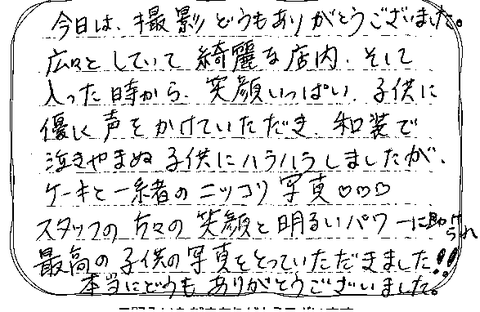 今日は、撮影どうもありがとうございました。
広々としていて綺麗な店内、そして
入った時から、笑顔いっぱい、子供に
優しく声をかけていただき、和装で
泣きやまぬ子供にハラハラしましたが、
ケーキと一緒のニッコリ写真♡♡♡
スタッフの方々の笑顔と明るいパワーに助けられ
最高の子供の写真をとっていただきました!!
本当にどうもありがとうございました。